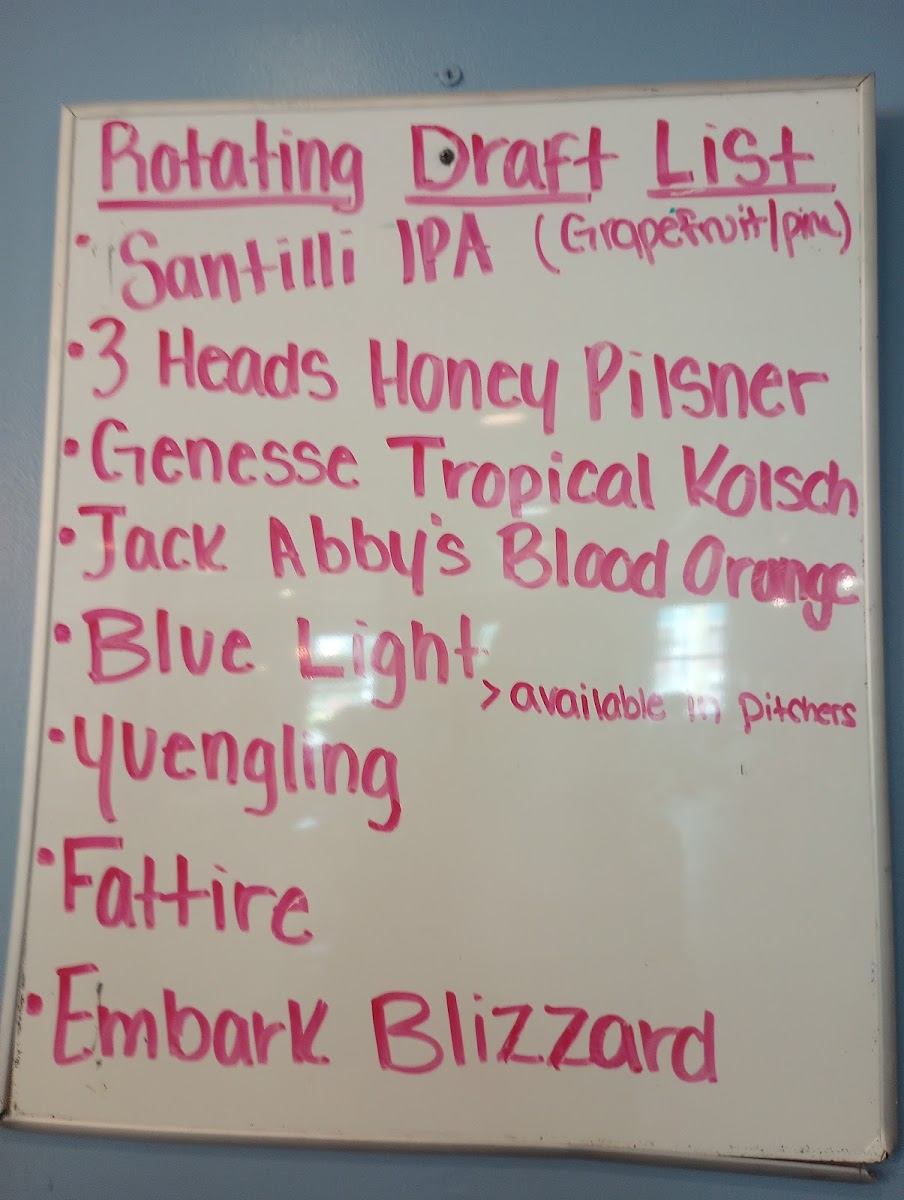 Rotating Draft List
• Santilli IPA (Grapefruit/pine)
• 3 Heads Honey Pilsner
• Genesse Tropical Kolsch
• Jack Abby's Blood Orange
• Blue Light
> available in pitchers
• Yuengling
• Fattire
• Embark Blizzard